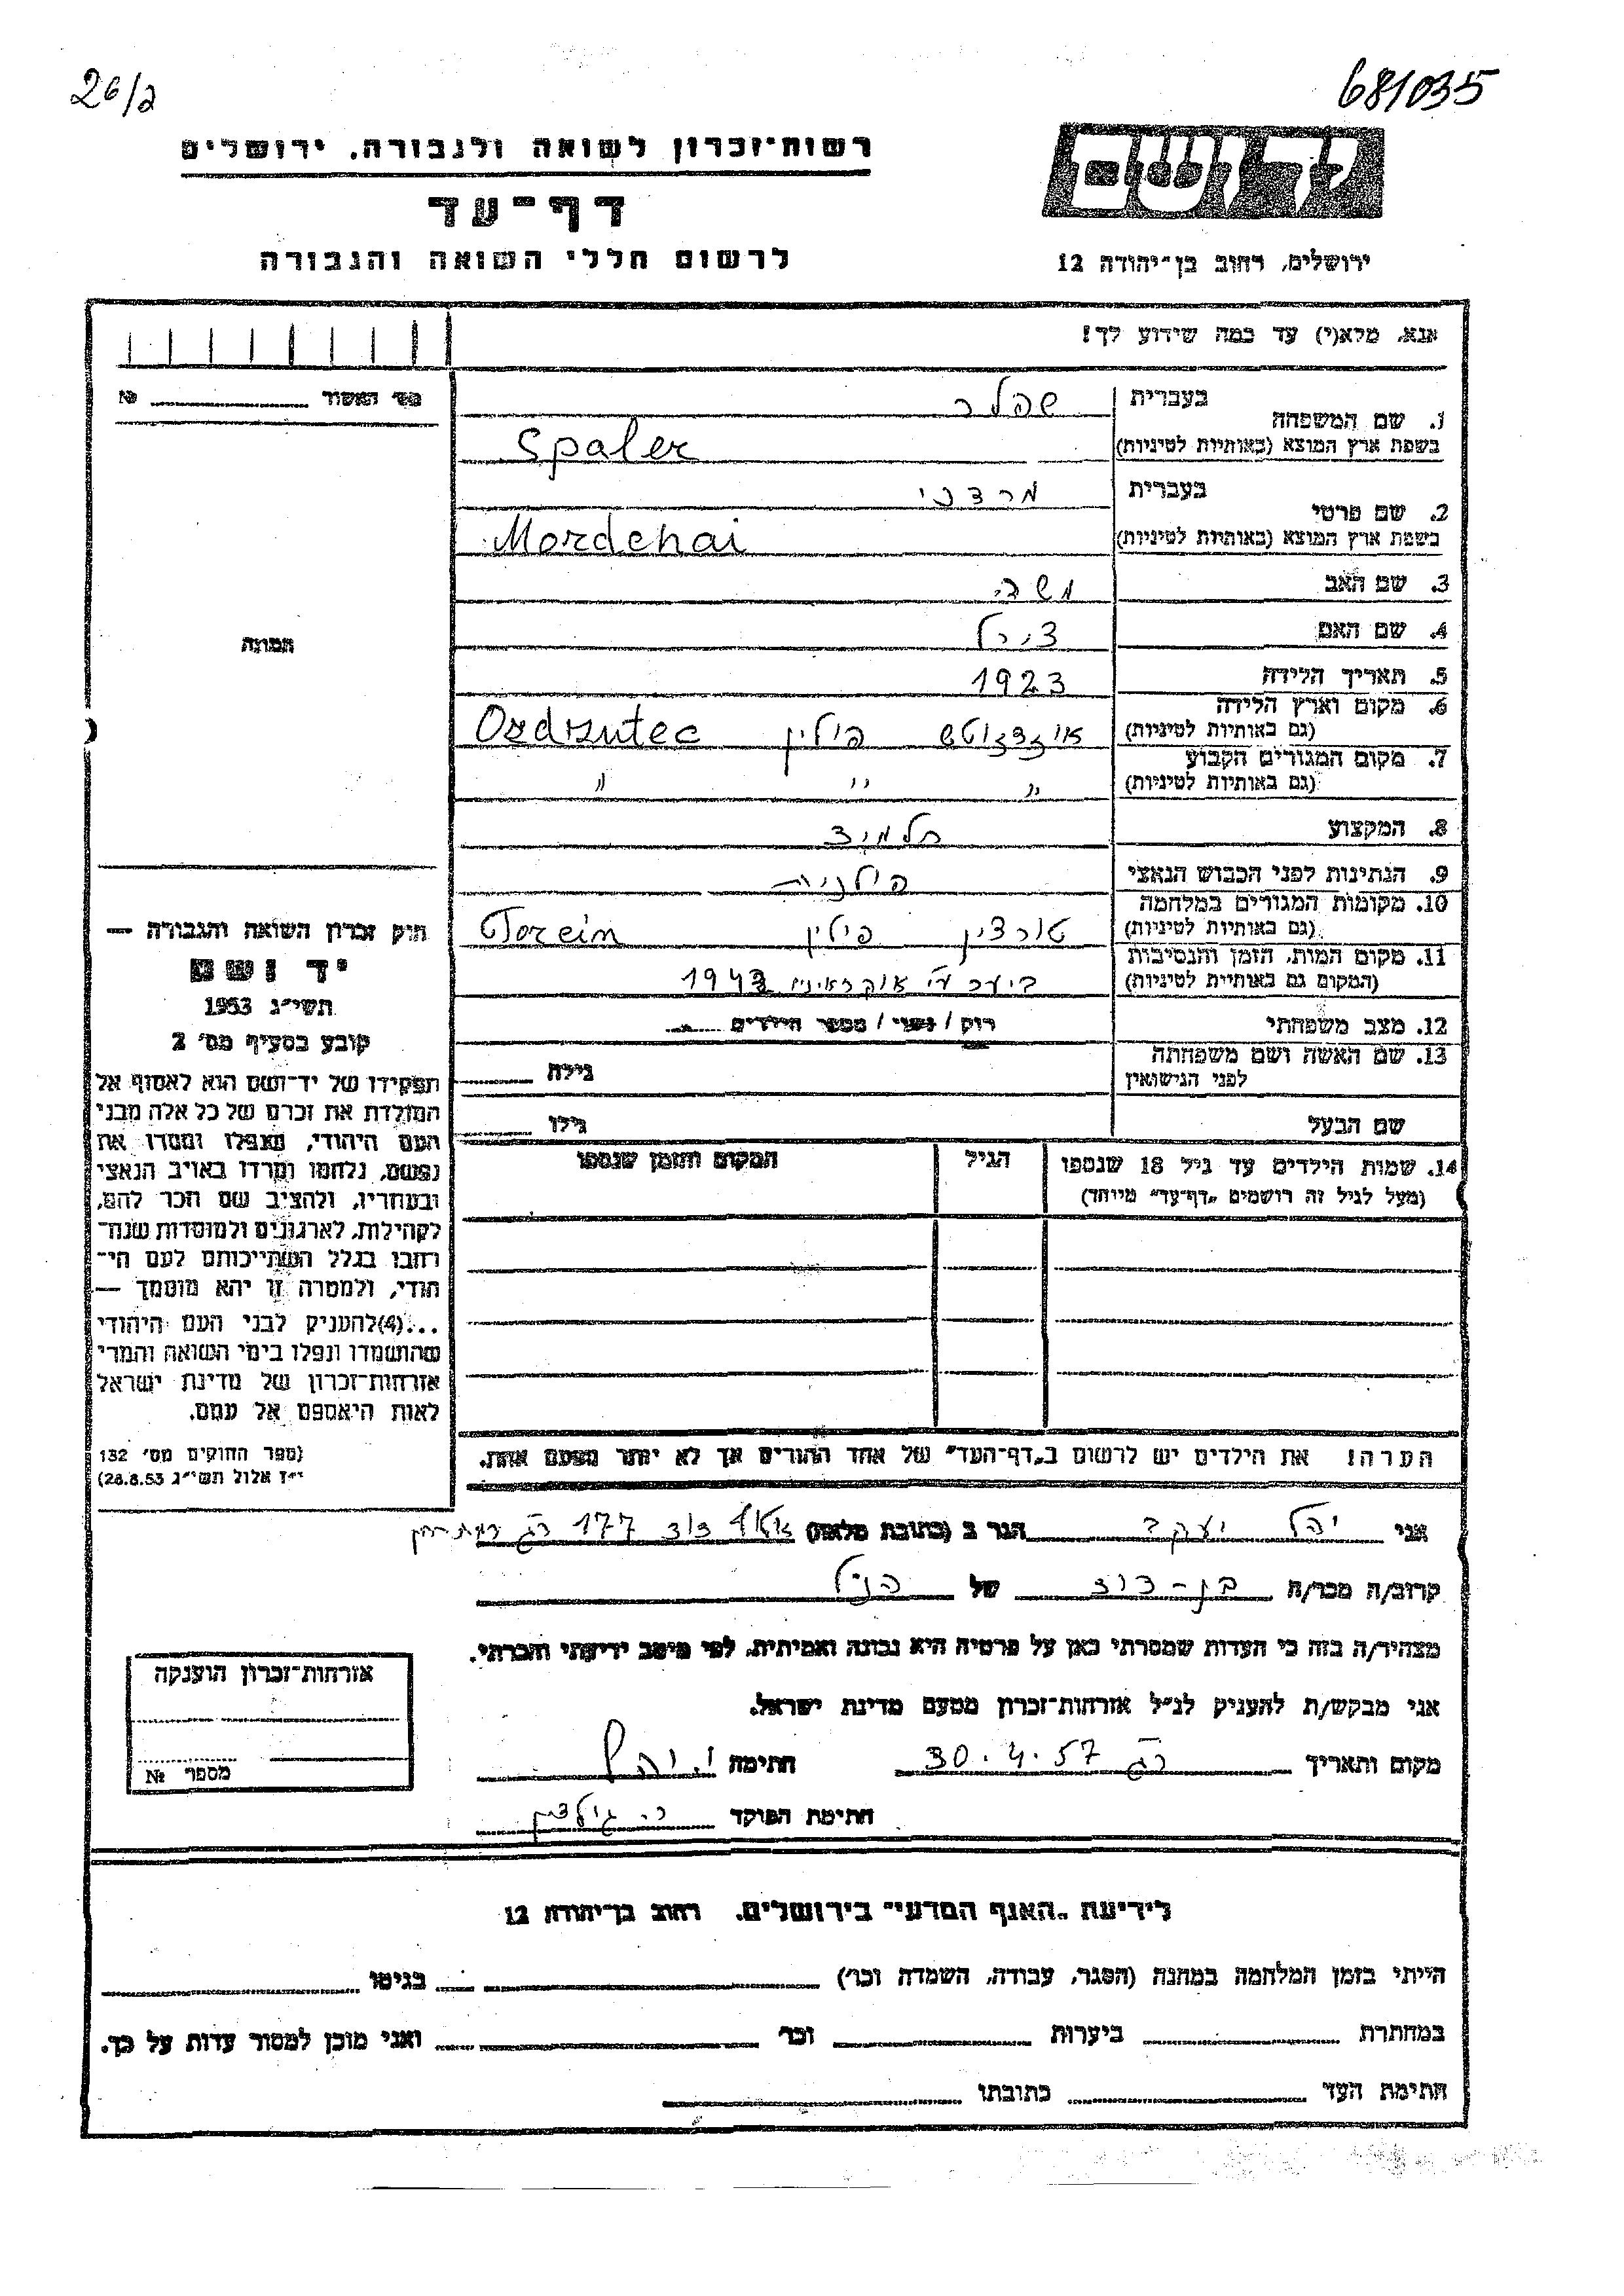 26/ג
681035
רשות-זכרון לשואה ולגבורה, ירושלים
יד ושם
דף-עד
לרשום חללי השואה והגבורה
ירושלים, רחוב בן-יהודה 12
אנא, מלא(י) עד כמה שידוע לך!
מס׳ האשור № 
1. שם המשפחה
בעברית שפלר
בשפת ארץ המוצא (באותיות לטיניות) Spaler
2. שם פרטי
בעברית מרדכי
בשפת ארץ המוצא (באותיות לטיניות) Mordehai
3. שם האב משה
4. שם האם צירל
5. תאריך הלידה 1923
6. מקום וארץ הלידה
(גם באותיות לטיניות) פולין
7. מקום המגורים הקבוע
(גם באותיות לטיניות) " " "
8. המקצוע תלמיד
9. הנתינות לפני הכבוש הנאצי פולנית
10. מקומות המגורים במלחמה
(גם באותיות לטיניות) טורצין פולין Torcin
11. מקום המות, הזמן והנסיבות
(המקום גם באותיות לטיניות) ביער ע״י אוקראינים 1943
12. מצב משפחתי רווק / נשוי / מספר הילדים
13. שם האשה ושם משפחתה
לפני הנישואין גילה
שם הבעל גילו
14. שמות הילדים עד גיל 18 שנספו הגיל המקום והזמן שנספו
(מעל לגיל זה רושמים „דף-עד" מיוחד)
התמונה
חוק זכרון השואה והגבורה —
יד ושם
תשי״ג 1953
קובע בסעיף מס׳ 2
תפקידו של יד-ושם הוא לאסוף אל
המולדת את זכרם של כל אלה מבני
העם היהודי, שנפלו ומסרו את
נפשם, נלחמו ומרדו באויב הנאצי
ובעוזריו, ולהציב שם וזכר להם,
לקהילות, לארגונים ולמוסדות שנח-
רבו בגלל השתייכותם לעם הי-
הודי, ולמטרה זו יהא מוסמך —
...(4)להעניק לבני העם היהודי
שהושמדו ונפלו בימי השואה והמרי
אזרחות-זכרון של מדינת ישראל
לאות היאספם אל עמם.
(ספר החוקים מס׳ 132
י״ז אלול תשי״ג 28.8.53)
הערה! את הילדים יש לרשום ב„דף-העד" של אחד ההורים אך לא יותר מפעם אחת.
אני יהל יעקב הגר ב (כתובת מלאה) 177 רמת חן
קרוב/ה מכר/ה בן-דוד של הנ״ל
מצהיר/ה בזה כי העדות שמסרתי כאן על פרטיה היא נכונה ואמיתית, לפי מיטב ידיעתי והכרתי.
אני מבקש/ת להעניק לנ״ל אזרחות-זכרון מטעם מדינת ישראל.
מקום ותאריך ר״ג 30.4.57 חתימה י. יהל
חתימת הפוקד
אזרחות-זכרון הוענקה
מספר №
לידיעת „האגף המדעי" בירושלים, רחוב בן-יהודה 12
הייתי בזמן המלחמה במחנה (הסגר, עבודה, השמדה וכו׳) בגיטו
במחתרת ביערות וכו׳ ואני מוכן למסור עדות על כך.
חתימת העד כתובתו